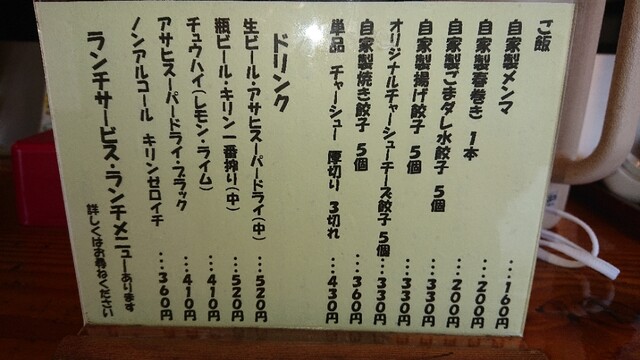 ご飯 …160円
自家製メンマ …200円
自家製春巻き 1本 …200円
自家製ごまダレ水餃子 5個 …330円
自家製揚げ餃子 5個 …330円
オリジナルチャーシューチーズ餃子 5個…330円
自家製焼き餃子 5個 …360円
単品 チャーシュー 厚切り 3切れ …430円
ドリンク
生ビール・アサヒスーパードライ(中) …520円
瓶ビール・キリン一番搾り(中) …520円
チュウハイ(レモン・ライム) …410円
アサヒスーパードライ・ブラック …410円
ノンアルコール キリンゼロイチ …360円
ランチサービス・ランチメニューあります
詳しくはお尋ねください